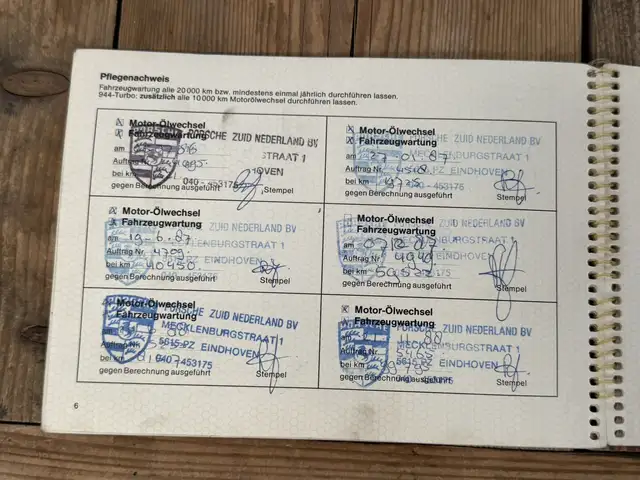 Pflegenachweis
Fahrzeugwartung alle 20 000 km bzw. mindestens einmal jährlich durchführen lassen.
944-Turbo: zusätzlich alle 10 000 km Motorölwechsel durchführen lassen.
Motor-Ölwechsel
Fahrzeugwartung
PORSCHE ZUID NEDERLAND BV
am
STRAAT 1
Auftrag Nr.
HOVEN
bei km
040 - 453175
gegen Berechnung ausgeführt
Stempel
Motor-Ölwechsel
Fahrzeugwartung
PORSCHE ZUID NEDERLAND BV
MECKLENBURGSTRAAT 1
am 27 01 87
Auftrag Nr.
PZ EINDHOVEN
bei km
040 - 453175
gegen Berechnung ausgeführt
Stempel
Motor-Ölwechsel
Fahrzeugwartung
ZUID NEDERLAND BV
am 19-6.87
LENBURGSTRAAT 1
Auftrag Nr. 4709
PZ EINDHOVEN
bei km 40450
gegen Berechnung ausgeführt
Stempel
Motor-Ölwechsel
Fahrzeugwartung
ZUID NEDERLAND BV
am 07 12 87
BURGSTRAAT 1
Auftrag Nr.
EINDHOVEN
bei km
gegen Berechnung ausgeführt
Stempel
Motor-Ölwechsel
Fahrzeugwartung
PORSCHE ZUID NEDERLAND BV
MECKLENBURGSTRAAT 1
am
Auftrag Nr.
5615 PZ EINDHOVEN
bei km
040 - 453175
gegen Berechnung ausgeführt
Stempel
Motor-Ölwechsel
Fahrzeugwartung
PORSCHE ZUID NEDERLAND BV
MECKLENBURGSTRAAT 1
am 11 88
Auftrag Nr. 5465
5615 PZ EINDHOVEN
bei km
453175
gegen Berechnung ausgeführt
Stempel
6